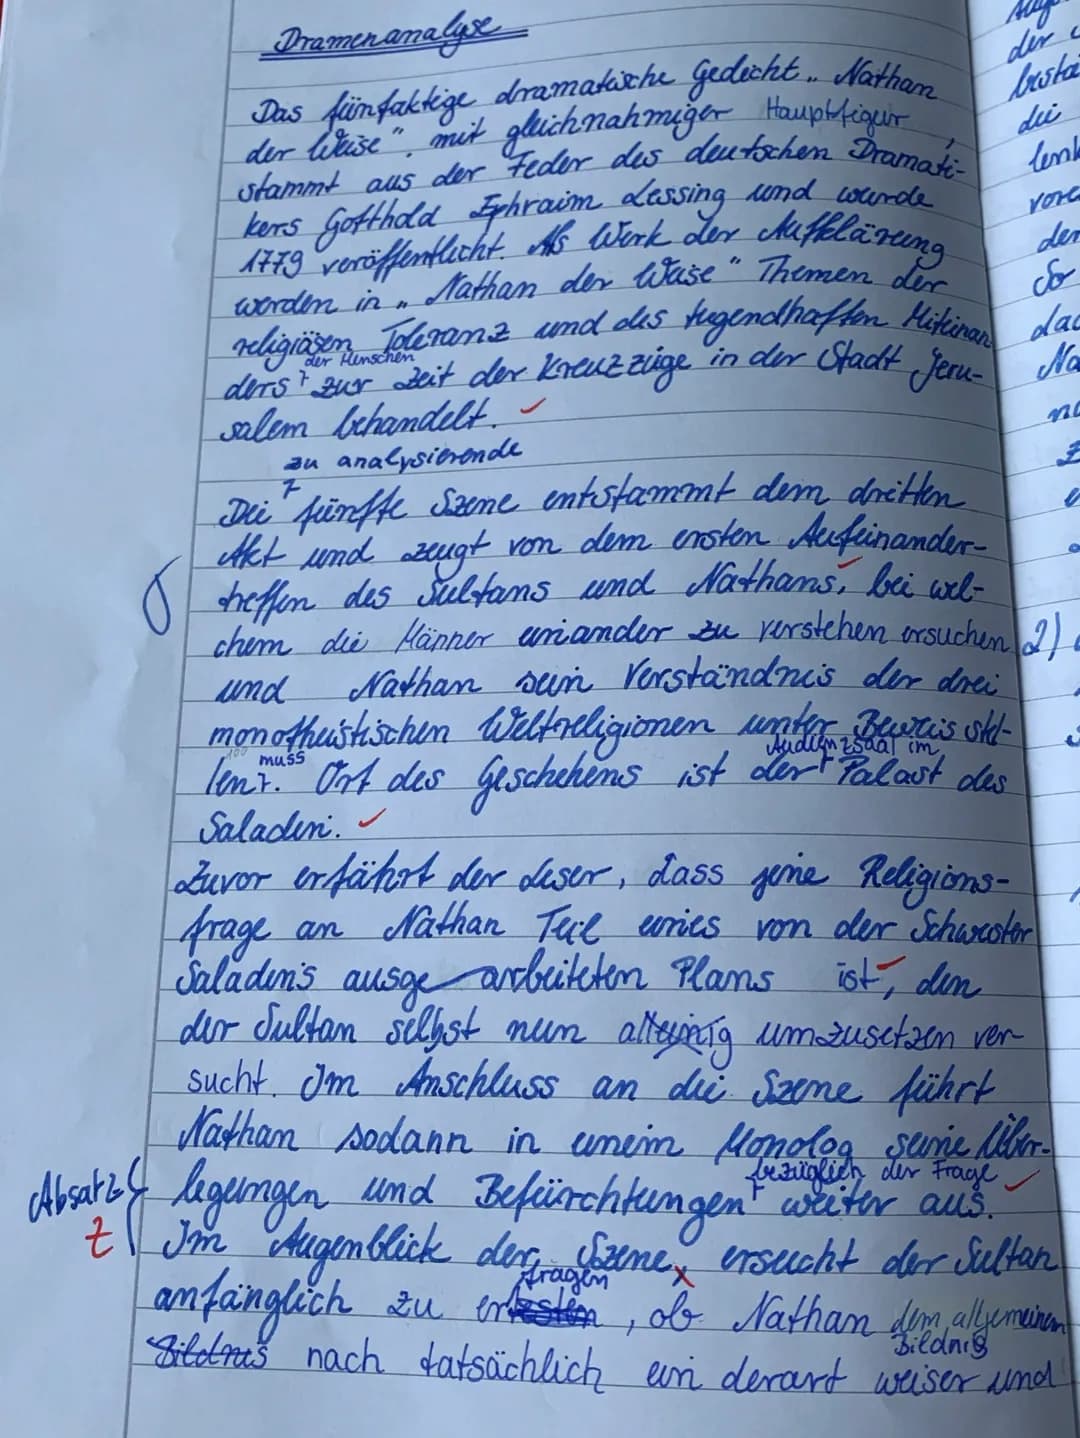 Dramenanalyse
Das fünfaktige dramatische Gedicht „Nathan
der Weise", mit gleichnahmiger Hauptfigur,
stammt aus der Feder des deutschen Dramati-
kers Gotthold Ephraim Lessing und wurde
1779 veröffentlicht. Als Werk der Aufklärung
werden in „Nathan der Weise" Themen der
religiösen Toleranz und des tugendhaften Miteinan
der Menschen
ders zur Zeit der Kreuzzüge in der Stadt Jeru-
salem behandelt.
zu analysierende
Die fünfte Szene entstammt dem dritten
Akt und zeugt von dem ersten Aufeinander-
treffen des Sultans und Nathans, bei wel-
chem die Männer einander zu verstehen ersuchen
und Nathan sein Verständnis der drei
monotheistischen Weltreligionen unter Beweis stel-
muss Audienzsaal im
len. Ort des Geschehens ist der Palast des
Saladin.
Zuvor erfährt der Leser, dass jene Religions-
frage an Nathan Teil eines von der Schwester
Saladin's ausgearbeiteten Plans ist, den
der Sultan selbst nun alleinig umzusetzen ver-
sucht. Im Anschluss an die Szene führt
Nathan sodann in einem Monolog seine Über-
bezüglich der Frage
Absatz legungen und Befürchtungen weiter aus.
Z Im Augenblick der Szene, ersucht der Sultan
fragen
anfänglich zu er, ob Nathan dem allgemeinen
Bildnis
Bildnis nach tatsächlich ein derart weiser und
der
die
den
So
2)